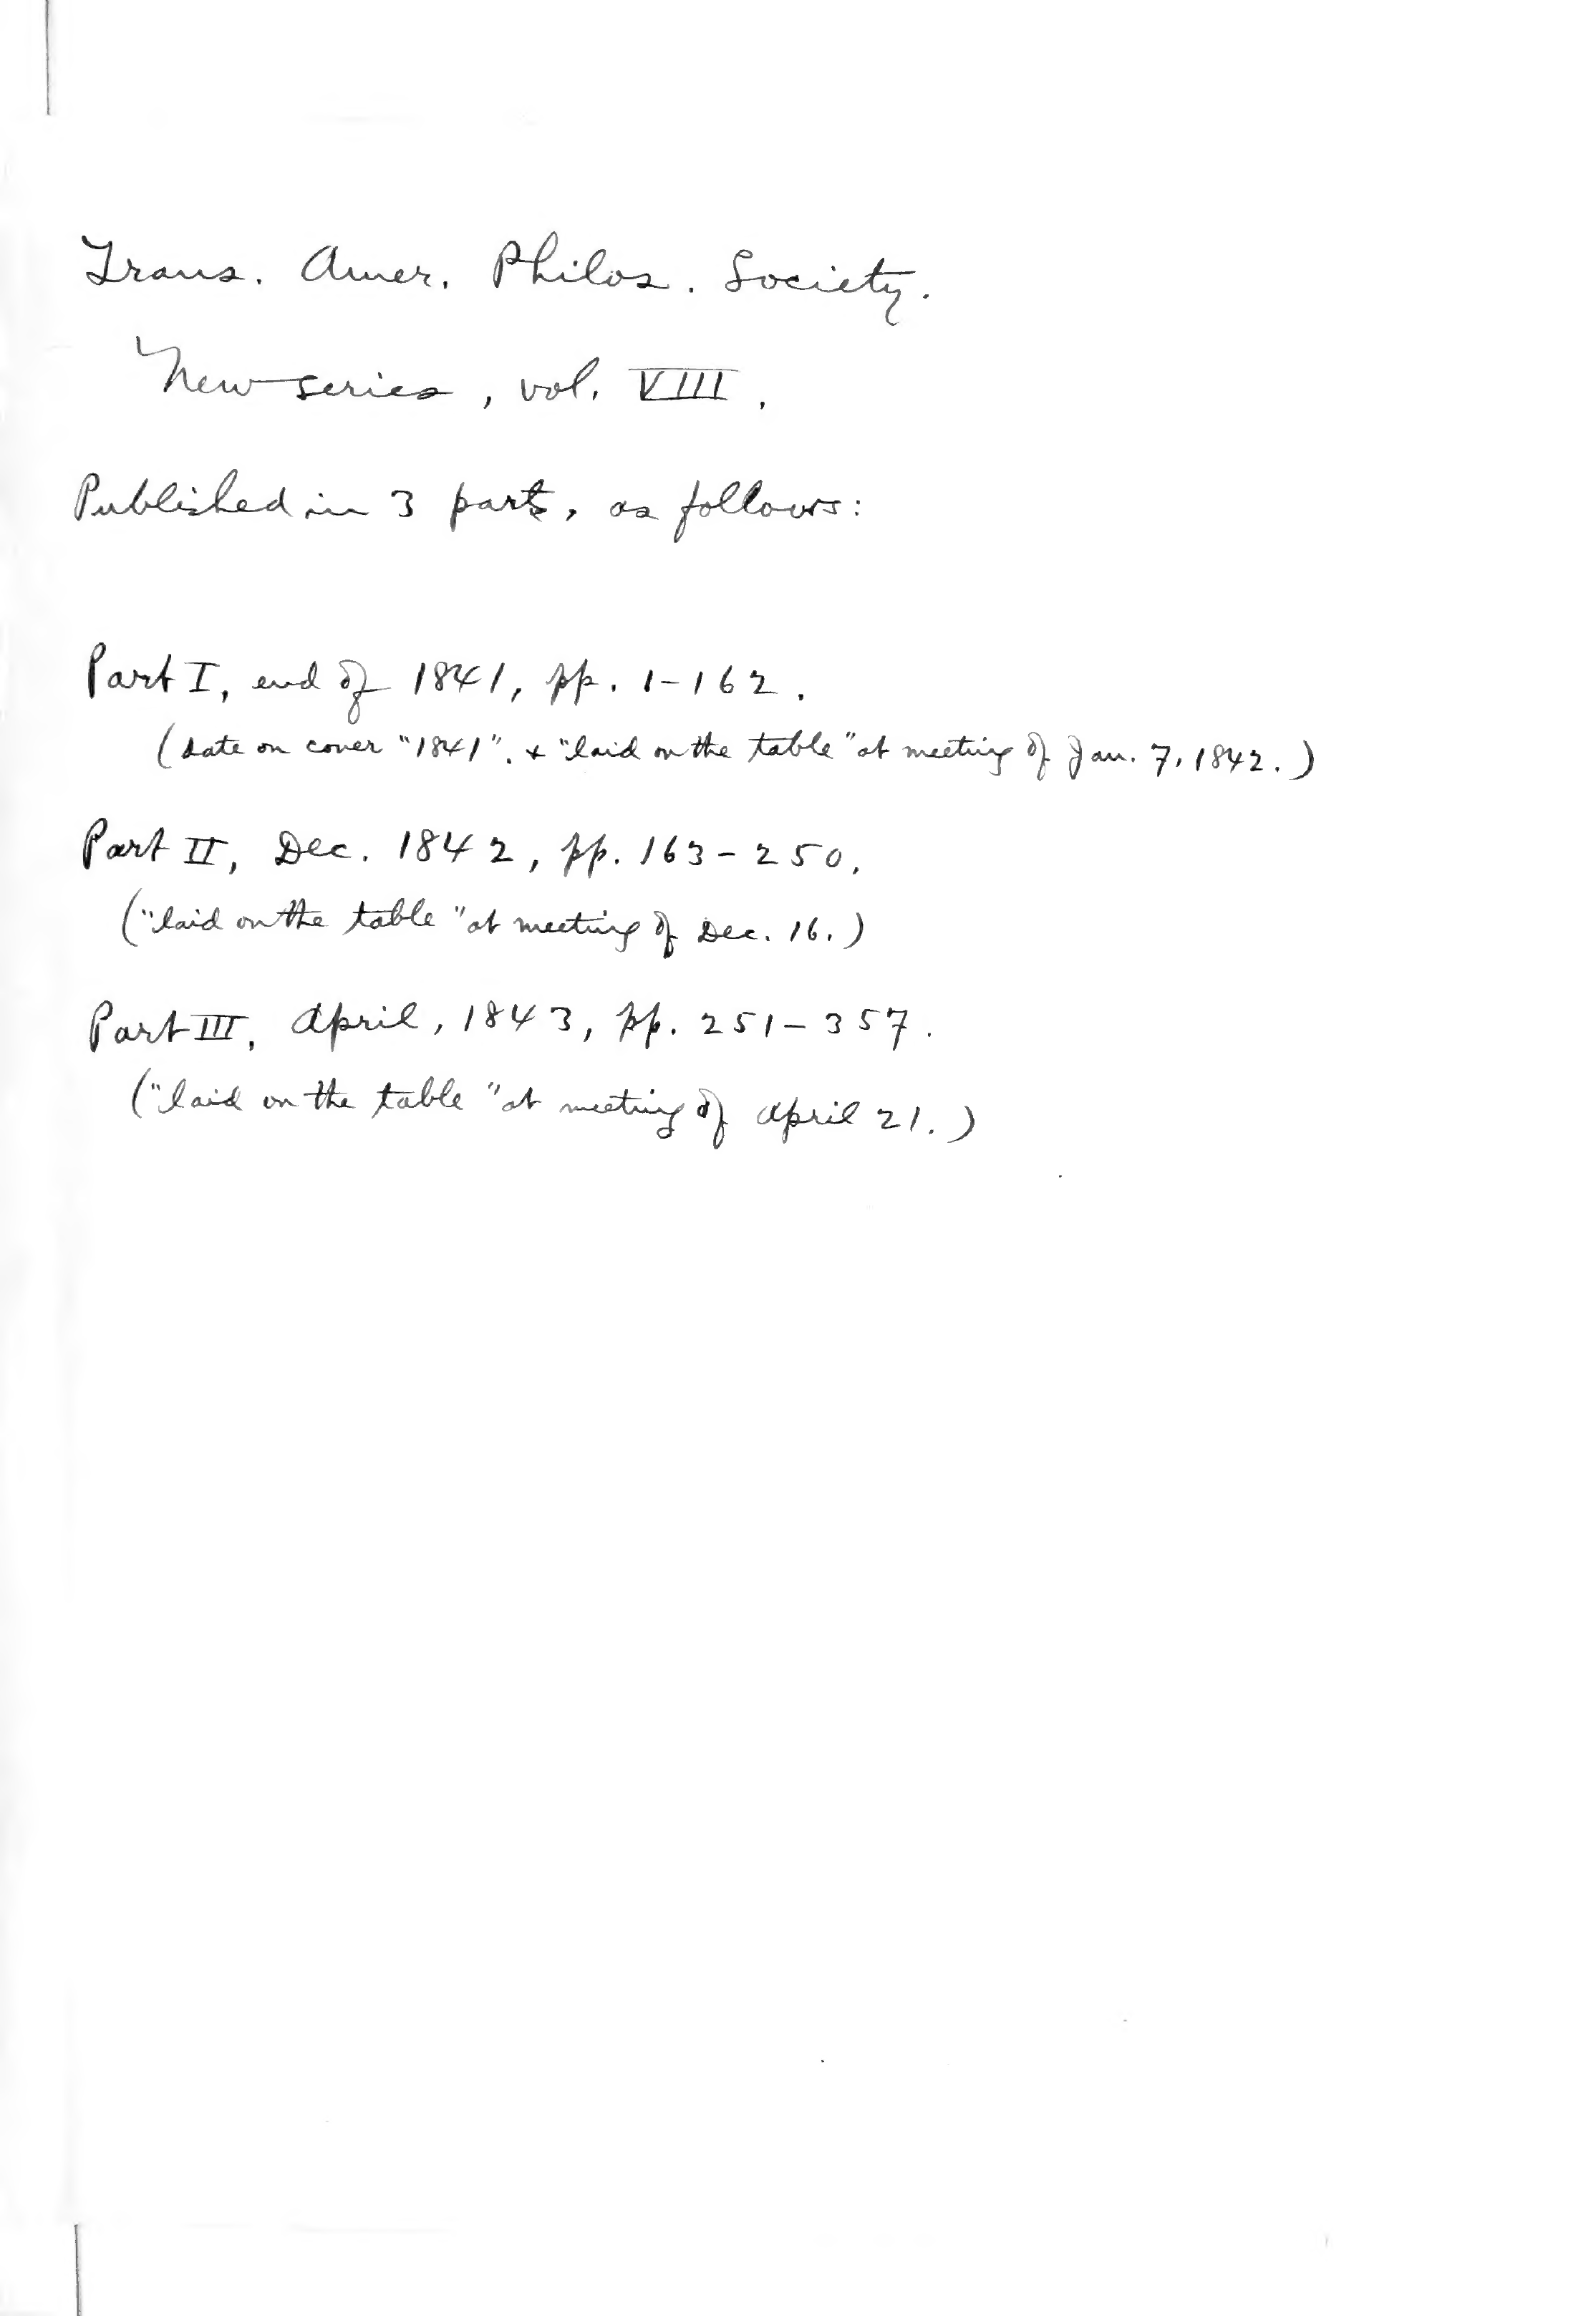 Trans. Amer. Philos. Society.
New series, vol. VIII.
Published in 3 parts, as follows:
Part I, end of 1841, pp. 1-162.
(Date on cover "1841". & "laid on the table" at meeting of Jan. 7, 1842.)
Part II, Dec. 1842, pp. 163-250.
("laid on the table" at meeting of Dec. 16.)
Part III, April, 1843, pp. 251-357.
("laid on the table" at meeting of April 21.)